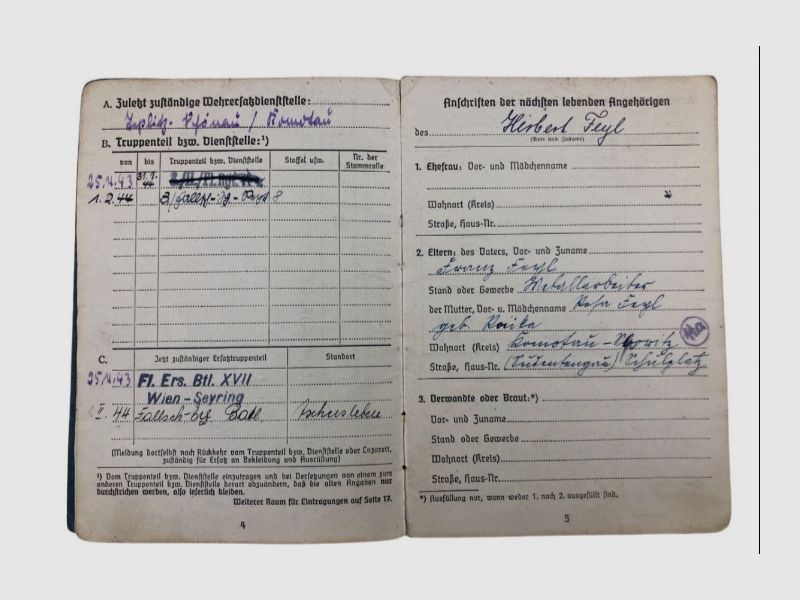 A. Zuletzt zuständige Wehrersatzdienststelle:
Teplitz-Schönau / Komotau
B. Truppenteil bzw. Dienststelle:¹)
von bis Truppenteil bzw. Dienststelle Staffel usw. Nr. der Stammrolle
25.11.43 31.1.44
1.2.44 3/Fallsch.-Jg.-Regt 8
C. Jetzt zuständiger Ersatztruppenteil Standort
25.11.43 Fl. Ers. Btl. XVII
Wien-Seyring
1.II.44 Fallsch. Batl Aschersleben
(Meldung dortselbst nach Rückkehr vom Truppenteil bzw. Dienststelle oder Lazarett,
zuständig für Ersatz an Bekleidung und Ausrüstung)
¹) Vom Truppenteil bzw. Dienststelle einzutragen und bei Versetzungen von einem zum
anderen Truppenteil bzw. Dienststelle derart abzuändern, daß die alten Angaben nur
durchstrichen werden, also leserlich bleiben.
Weiterer Raum für Eintragungen auf Seite 17.
4
Anschriften der nächsten lebenden Angehörigen
des Herbert Feyl
(Vor- und Zuname)
1. Ehefrau: Vor- und Mädchenname
Wohnort (Kreis)
Straße, Haus-Nr.
2. Eltern: des Vaters, Vor- und Zuname
Franz Feyl
Stand oder Gewerbe Metallarbeiter
der Mutter, Vor- u. Mädchenname Rosa Feyl
geb.
Wohnort (Kreis) Komotau-Oboritz
Straße, Haus-Nr. (Sudetengau) Schulplatz
3. Verwandte oder Braut:*)
Vor- und Zuname
Stand oder Gewerbe
Wohnort (Kreis)
Straße, Haus-Nr.
*) Ausfüllung nur, wenn weder 1. noch 2. ausgefüllt sind.
5